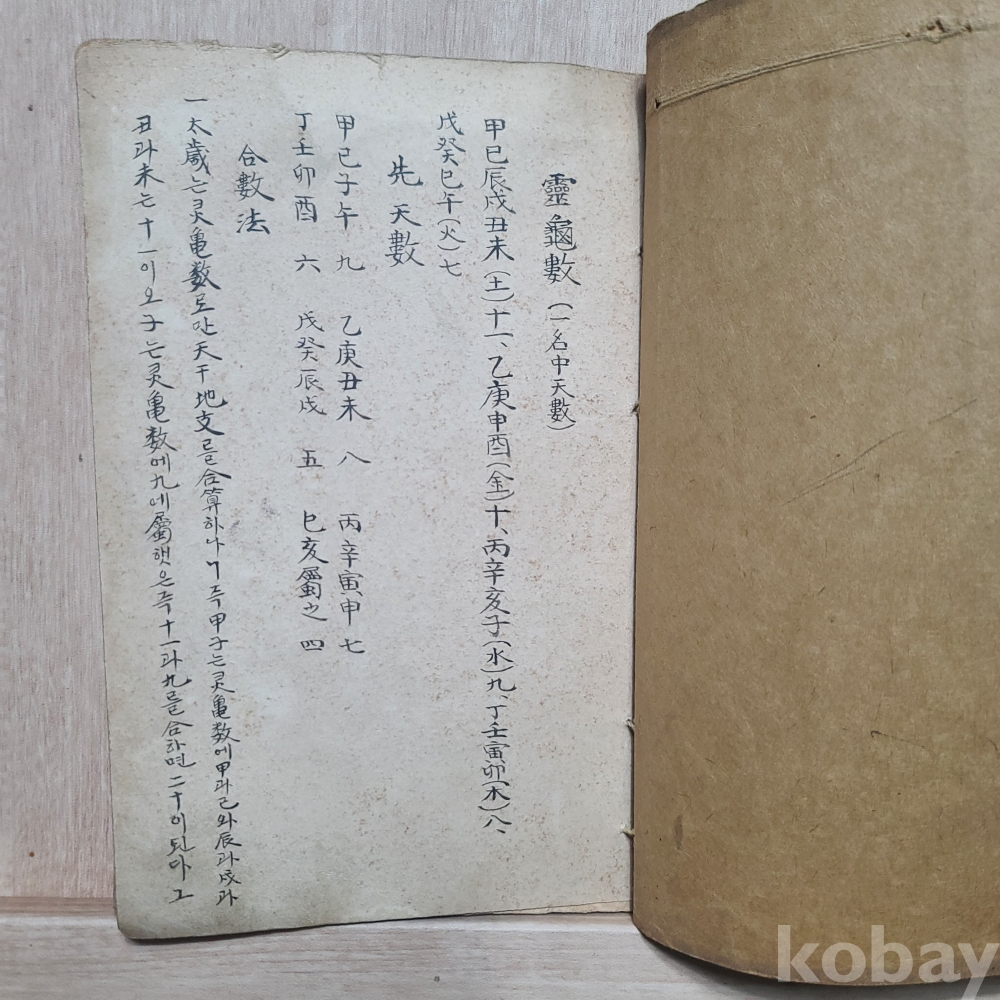 靈龜數 (一名中天數)
甲己辰戌丑未(土)十一、乙庚申酉(金)十、丙辛亥子(水)九、丁壬寅卯(木)八、
戊癸巳午(火)七
先天數
甲己子午 九 乙庚丑未 八 丙辛寅申 七
丁壬卯酉 六 戊癸辰戌 五 巳亥屬之 四
合數法
一太歲는灵亀数로만天干地支를合算하나니즉甲子는灵亀数에甲과己와辰과戌과
丑과未는十一이오子는灵亀数에九에屬햇은즉十一과九를合하면二十이된다그
kobay